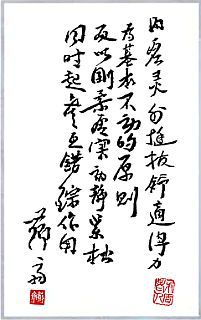 内容灵分挺拔舒适得力
为基本不动的原则
及以刚柔虚实动静紧松
同时起变互错综作用